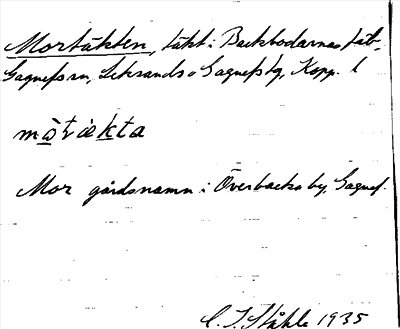 Mortäkten, täkt i Backbodarnas fäb.,
Gagnefs sn, Leksands o Gagnefs tg, Kopp. l
mòtækta
Mor gårdsnamn i Överbacka by, Gagnef.
C. I. Ståhle 1935